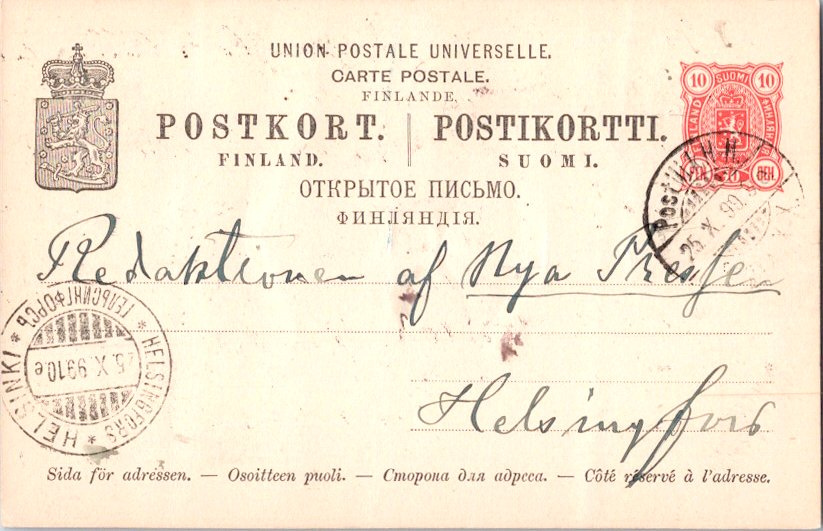 UNION POSTALE UNIVERSELLE.
CARTE POSTALE.
FINLANDE.
POSTKORT. POSTIKORTTI.
FINLAND. SUOMI.
ОТКРЫТОЕ ПИСЬМО.
ФИНЛЯНДІЯ.
10 SUOMI 10
FINLAND
PEN. 10 ПЕН.
25 X 99
Redaktionen af Nya Pressen
ГЕЛЬСИНГФОРСЪ
HELSINKI * HELSINGFORS *
25.X.99 10e
Helsingfors
Sida för adressen. — Osoitteen puoli. — Сторона для адреса. — Côté réservé à l'adresse.